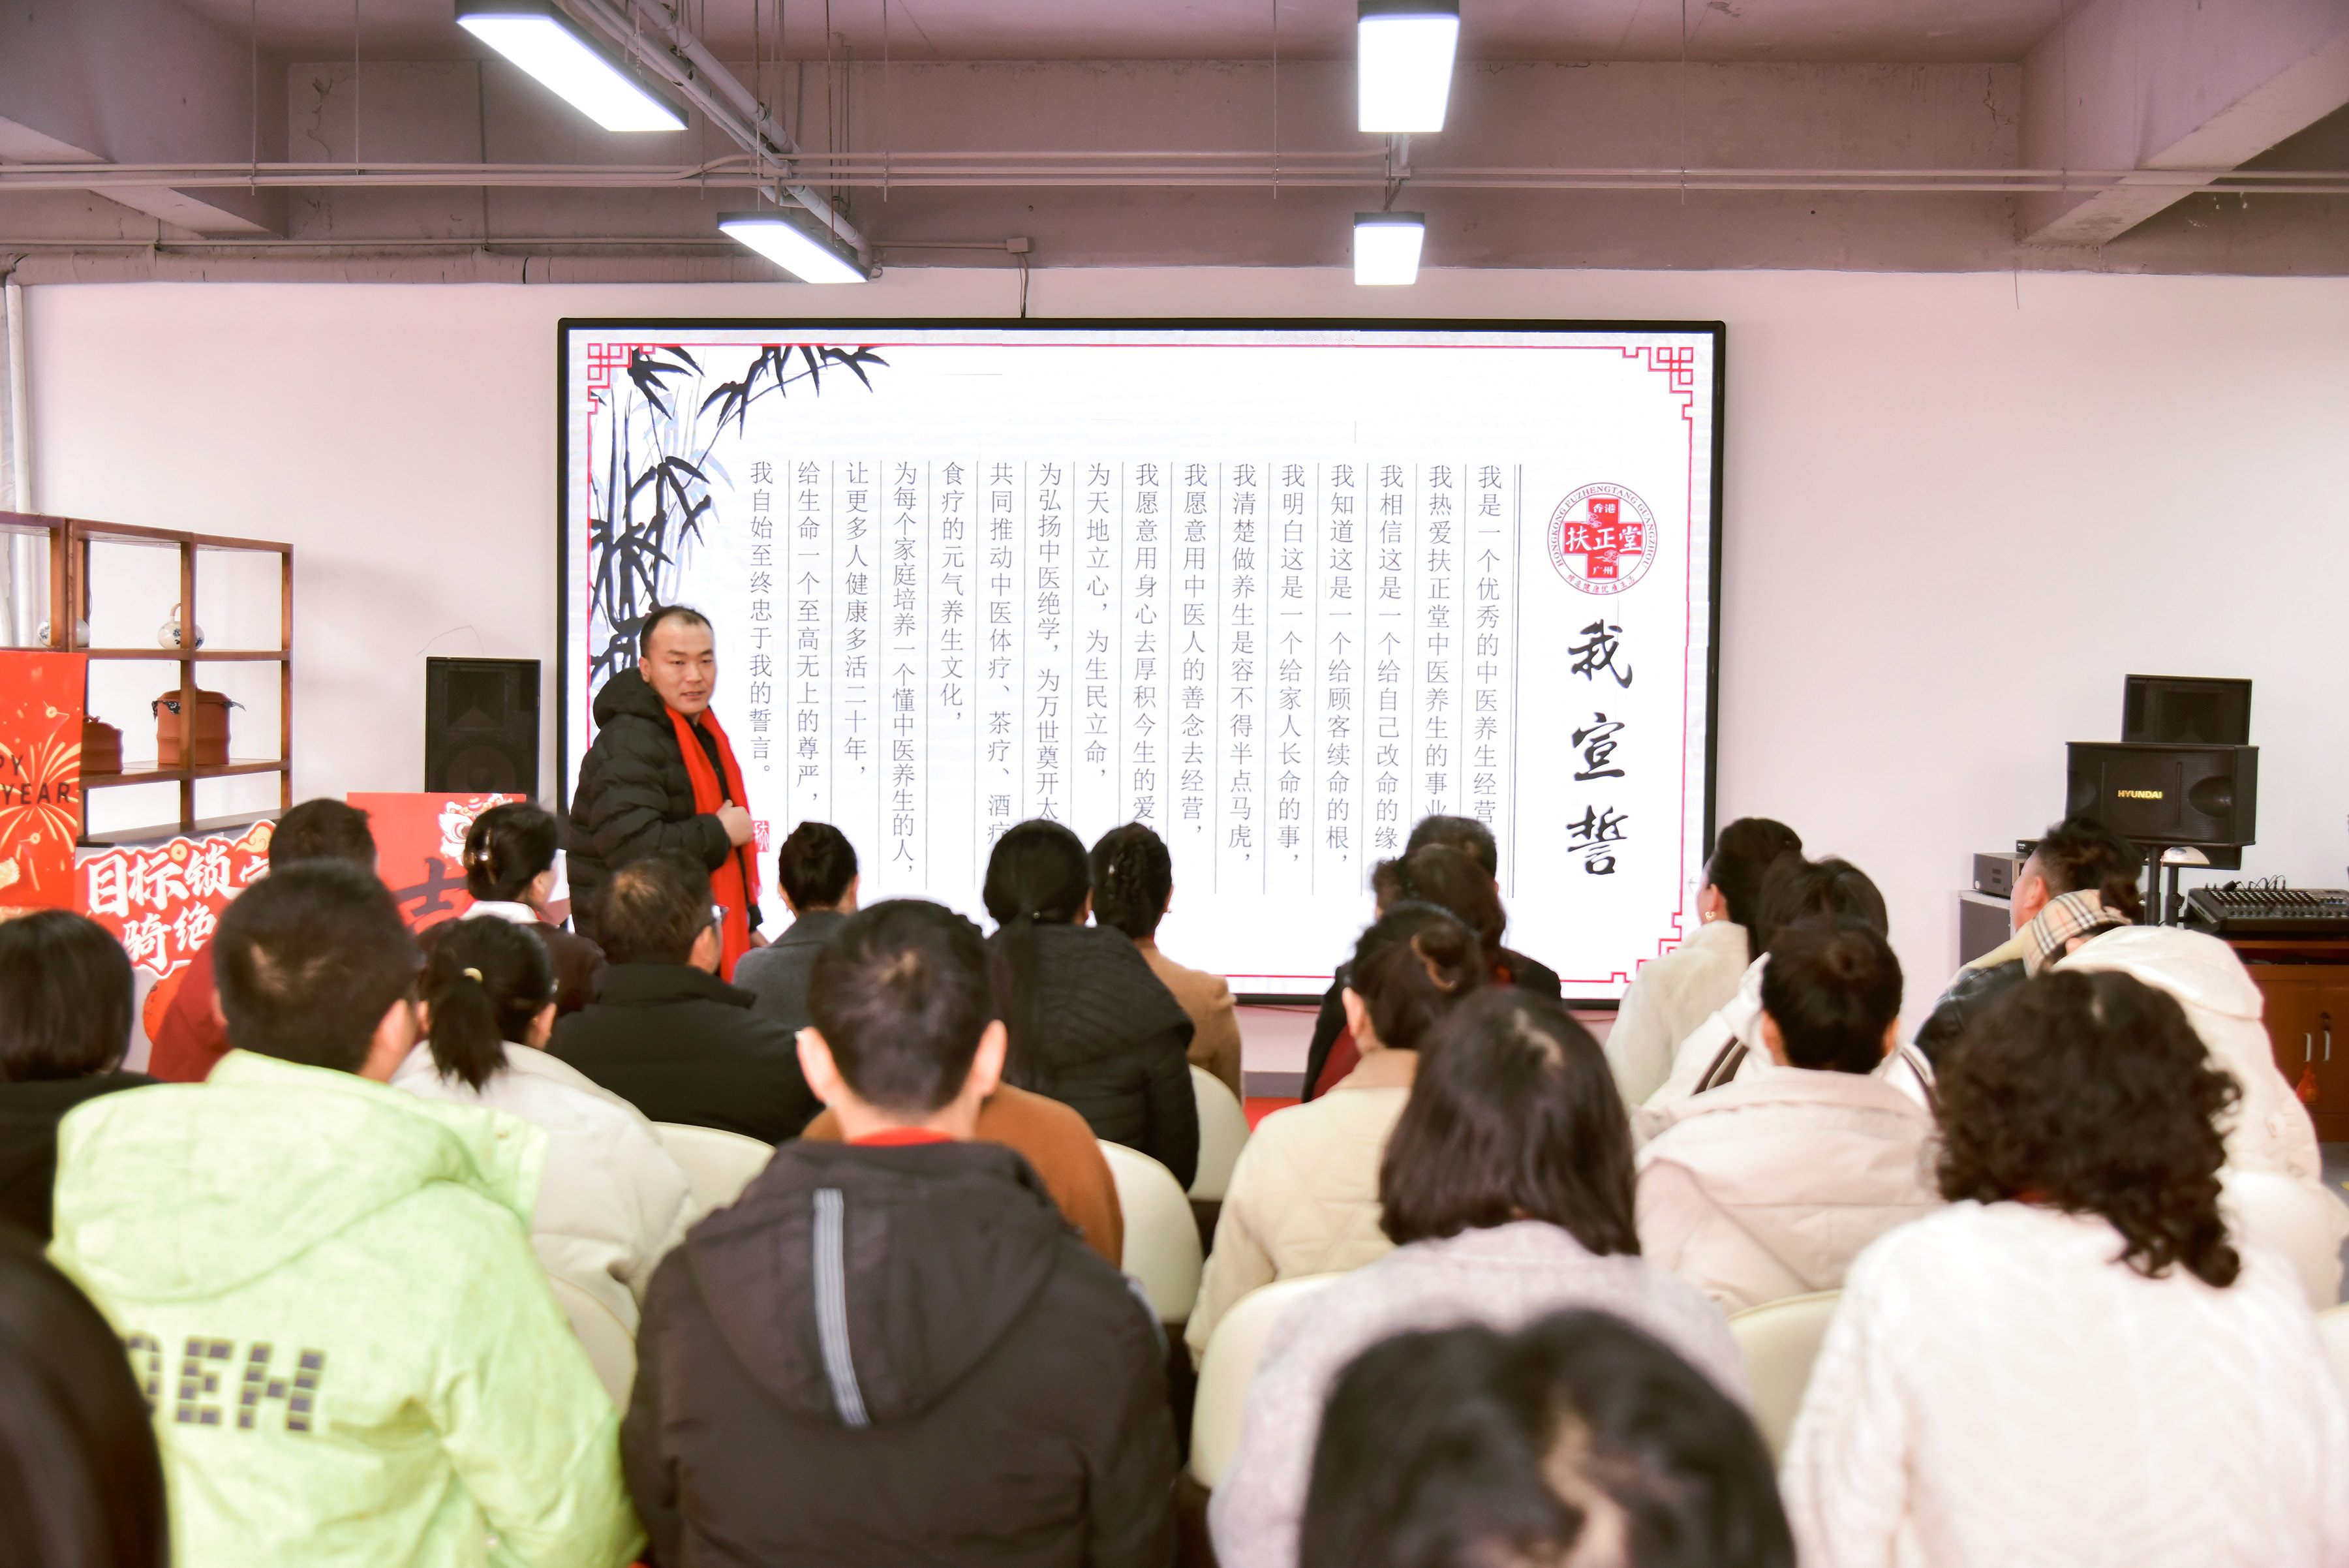 我宣誓
HONGKONG FUZHENGTANG GUANGZHOU
香港
扶正堂
广州
我是一个优秀的中医养生经营
我热爱扶正堂中医养生的事业
我相信这是一个给自己改命的缘
我知道这是一个给顾客续命的根，
我明白这是一个给家人长命的事，
我清楚做养生是容不得半点马虎，
我愿意用中医人的善念去经营，
我愿意用身心去厚积今生的爱
为天地立心，为生民立命，
为弘扬中医绝学，为万世奠开太
共同推动中医体疗、茶疗、酒疗
食疗的元气养生文化，
为每个家庭培养一个懂中医养生的人，
让更多人健康多活二十年，
给生命一个至高无上的尊严，
我自始至终忠于我的誓言。
HYUNDAI
PY
YEAR
目标锁定
骑绝
OEH